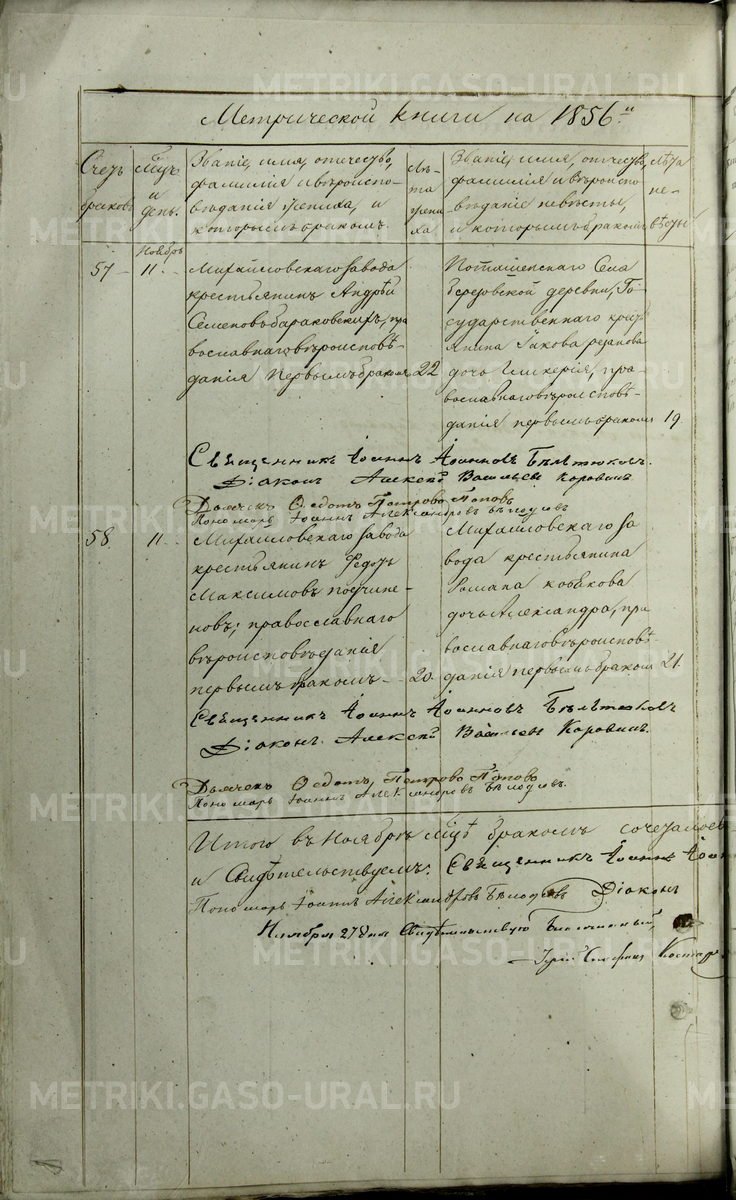 Метрической книги на 1856й
Счетъ браковъ
Мѣцъ и день.
Званіе, имя, отчество, фамилія и вѣроиспо-
вѣданіе жениха, и которымъ бракомъ.
Лѣ-та жени-ха
Званіе, имя, отчество, фамилія и вѣроиспо-
вѣданіе невѣсты, и которымъ бракомъ
Лѣта не-вѣсты
Ноябрь
57
11.
Михайловскаго завода
крестьянинъ Андрей
Семеновъ Бараковскихъ, пра
вославнаго вѣроисповѣ-
данія первымъ бракомъ
22
Поташенскаго Села
березовской деревни, Го-
сударственнаго крестья
янина Іякова резанова
дочь Гликерія, пра
вославнаго вѣроисповѣ-
данія первымъ бракомъ
19
Священникъ Іоаннъ Іоанновъ Бѣлтюковъ.
Діаконъ Алексѣй Васильевъ Коровинъ
Дьячекъ Федотъ Петровъ Поповъ
Пономарь Іоаннъ Александровъ
58.
11
Михайловскаго завода
крестьянинъ Федоръ
Максимовъ
новъ; православнаго
вѣроисповѣданія
первымъ бракомъ
20
Михайловскаго за
вода крестьянина
Романа кобякова
дочь Александра, пра
вославнаго вѣроисповѣ-
данія первымъ бракомъ
21.
Священникъ Іоаннъ Іоанновъ Бѣлтюковъ
Діаконъ Алексѣй Васильевъ Коровинъ.
Дьячекъ Федотъ Петровъ Поповъ
Пономарь Іоаннъ Александровъ
Итого въ Ноябрѣ Мцѣ бракомъ
и Свидѣтельствуемъ: Священникъ Іоаннъ
Пономарь Іоаннъ Александровъ Діаконъ
Ноября 27 дня Свидѣтельствую Благочинный,
METRIKI.GASO-URAL.RU